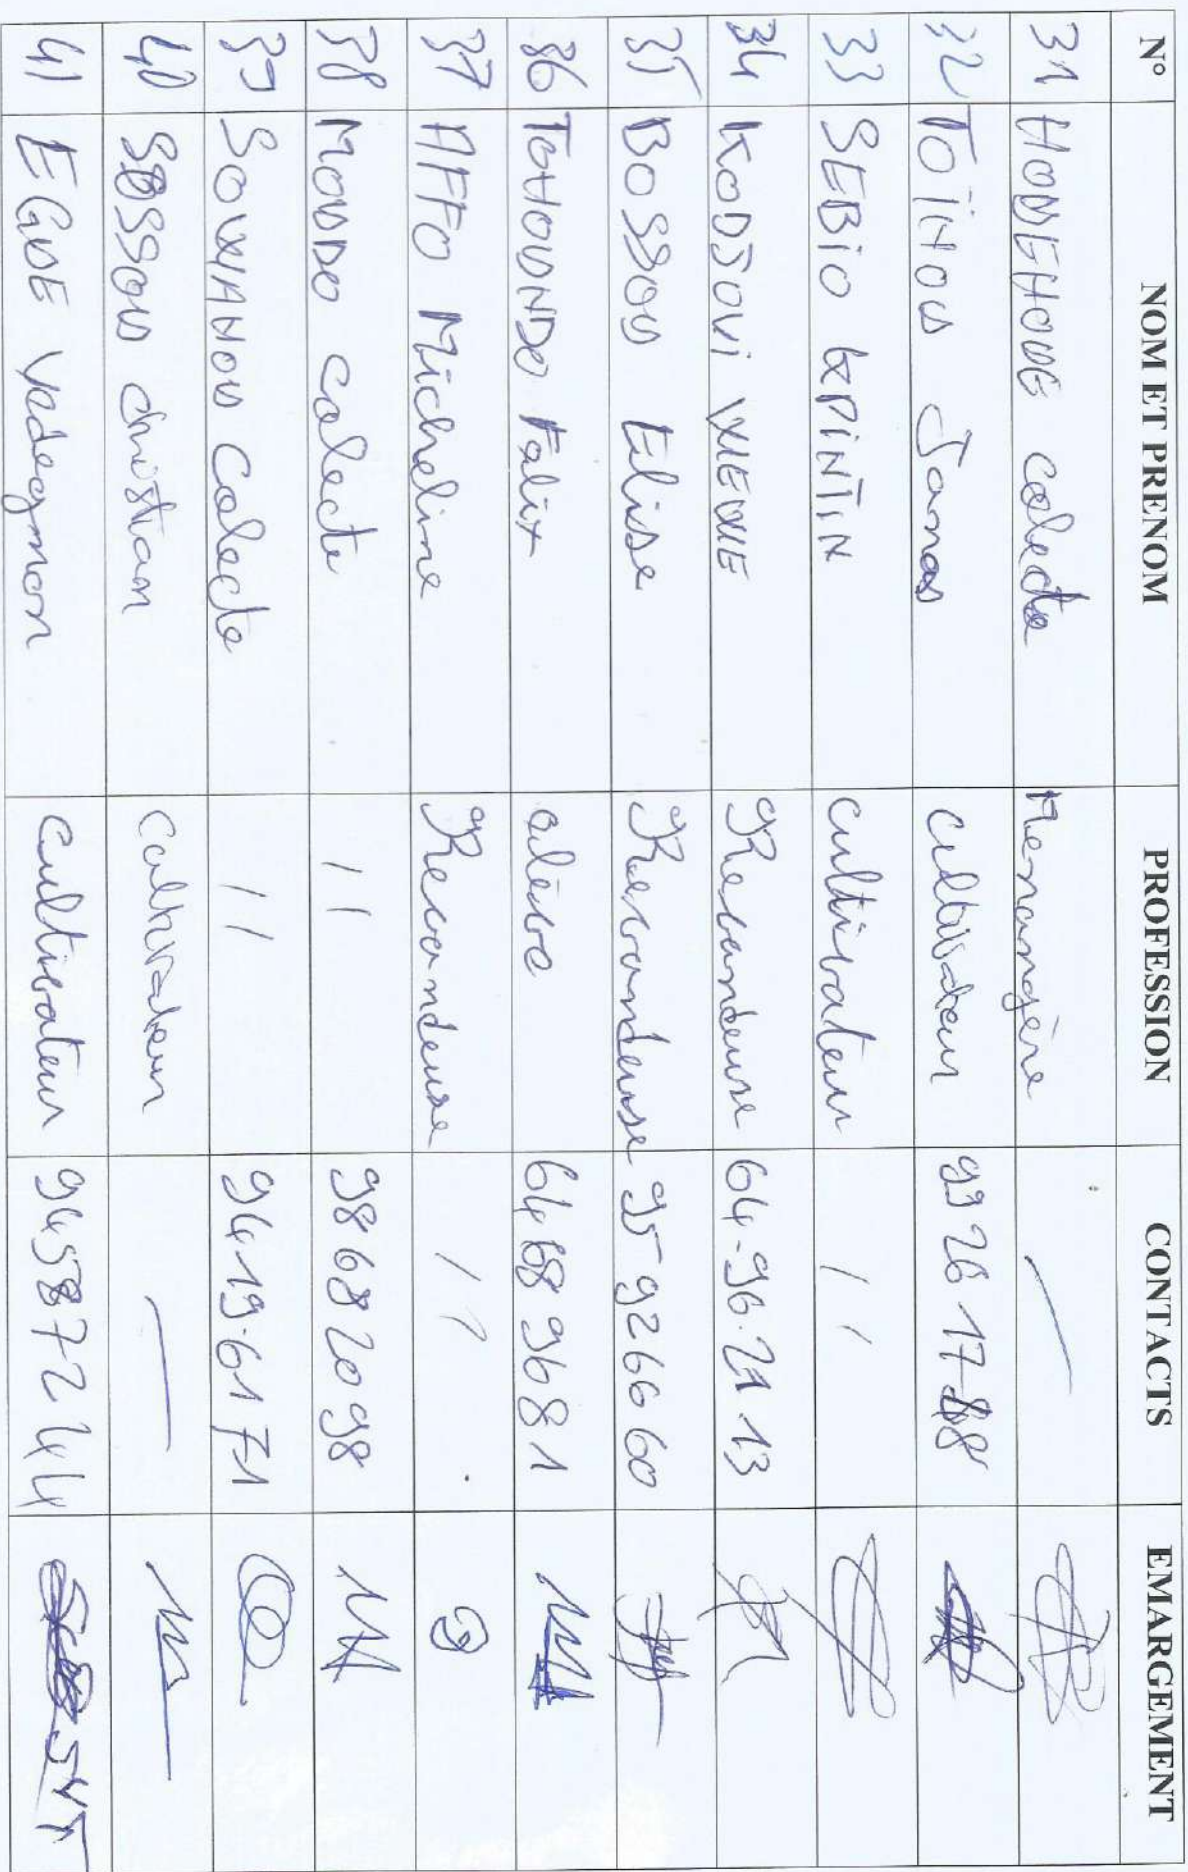 N° NOM ET PRENOM PROFESSION CONTACTS EMARGEMENT
31 HODEHOUE colecte Menangère —
32 TOÏHOU Jonas cultivateur 99 26 17 88
33 SEBIO KPINTIN cultivateur / /
34 KODJOVI Revandeuse 64-96-21 13
35 BOSSOU Elise Revandeuse 95 92 66 60
36 TOHOUNDO Felix elève 64 68 96 81
37 AFFO Micheline Revandeuse / /
38 MOUDO colecte / / 98 68 20 98
39 SOVIAHOU Colecte / / 94-19-61 71
40 SOSSOU christian Cultivateur —
41 EGUE Vadegnon Cultivateur 94 58 72 44